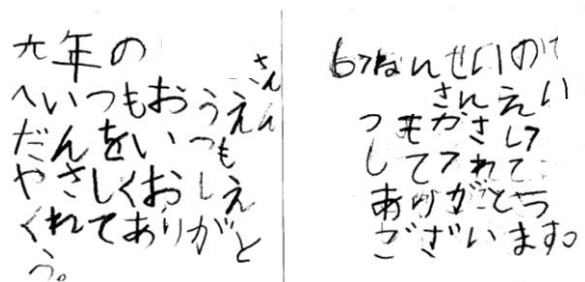 六年の
さん
へいつもおうえん
だんをいつも
やさしくおしえ
くれてありがと
う。
6ねんせいの
さんえい
つもかさし
してくれて
ありがとう
ございます。